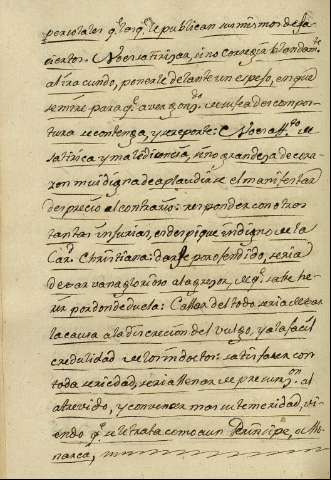 que se publican sus mismos desa-
ciertos. No es satirizar, sino corregir blandamte.
al iracundo, ponerle delante un espejo, en que
se mire para q. avergonzdo. de su fea descompos-
tura se contenga, y se reporte: No es
satirica y maledicencia, sino grandeza de cora-
zon mui digna de aplaudirse el manifestar
desprecio al contrario: responder con otras
tantas injurias, en despique indigno de la
Card. Christiana: darse por ofendido, seria
dexar vanaglorioso al agresor, de q. sabe he-
rir por donde duela: Callar del todo, seria dexar
la causa a la discrecion del vulgo, y a la facil
credulidad de los indoctos: satisfacer con
toda seriedad, seria llenar de presuncon. al
atrevido, y convencer mas su temeridad, vi-
endo q. se le trata como a un Principe, o Mo-
narca,